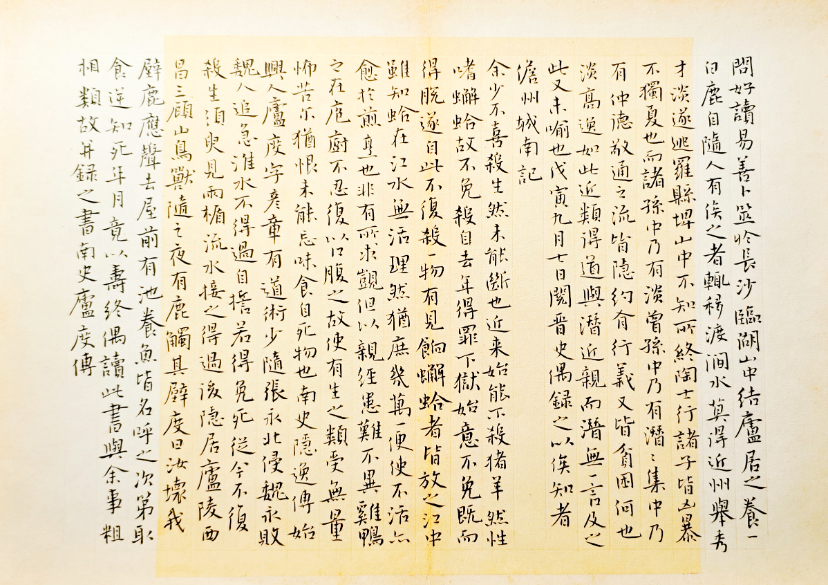 問好讀易善卜筮於長沙臨湖山中結廬居之養一
白鹿自隨人有候之者輒移渡澗水莫得近州舉秀
才淡遂逃羅縣埤山中不知所終陶士行諸子皆凶暴
不獨夏也而諸孫中乃有淡曾孫中乃有潛〻集中乃
有仲德敬通之流皆隱約有行義又皆貧困何也
淡高逸如此近類得道與潛近親而潛無一言及之
此又未喻也戊寅九月七日閱晉史偶錄之以俟知者
儋州城南記
余少不喜殺生然未能斷也近来始能不殺猪羊然性
嗜蠏蛤故不免殺自去年得罪下獄始意不免既而
得脫遂自此不復殺一物有見餉蠏蛤者皆放之江中
雖知蛤在江水無活理然猶庶幾萬一便使不活亦
愈於煎烹也非有所求覬但以親經患難不異雞鴨
之在庖廚不忍復以口腹之故使有生之類受無量
怖苦尔猶恨未能忘味食自死物也南史隱逸傳始
興人廬度字彥章有道術少隨張永北侵魏永敗
魏人追急淮水不得過自擔若得免死從今不復
殺生須臾見兩楯流水接之得過後隱居廬陵西
昌三顧山鳥獸隨之夜有鹿觸其壁度曰汝壞我
壁鹿應聲去屋前有池養魚皆名呼之次第取
食逆知死年月竟以壽終偶讀此書與余事粗
相類故并錄之書南史廬度傳